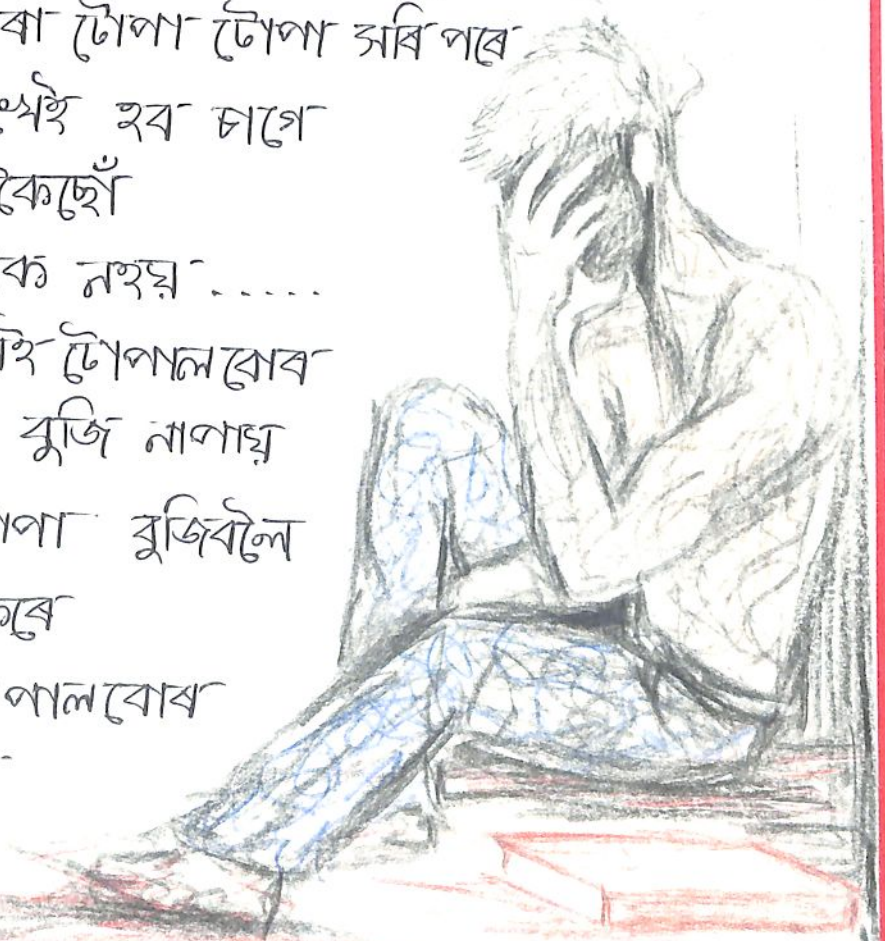 ৰা টোপা টোপা সৰি পৰে
খেই হব চাগে
কৈছোঁ
ক নহয় .....
ই টোপাল বোৰ
বুজি নাপায়
পা বুজিবলৈ
কৰে
পাল বোৰ